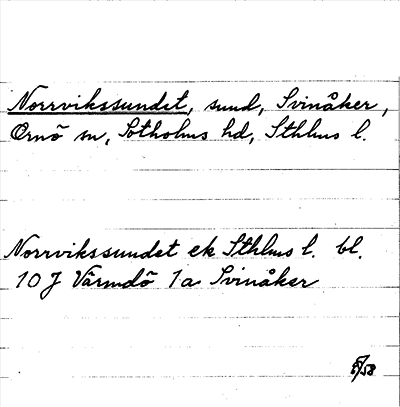 Norrvikssundet, sund, Svinåker,
Ornö sn, Sotholms hd, Sthlms l.
Norrvikssundet ek Sthlms l. bl.
10 J Värmdö 1a Svinåker